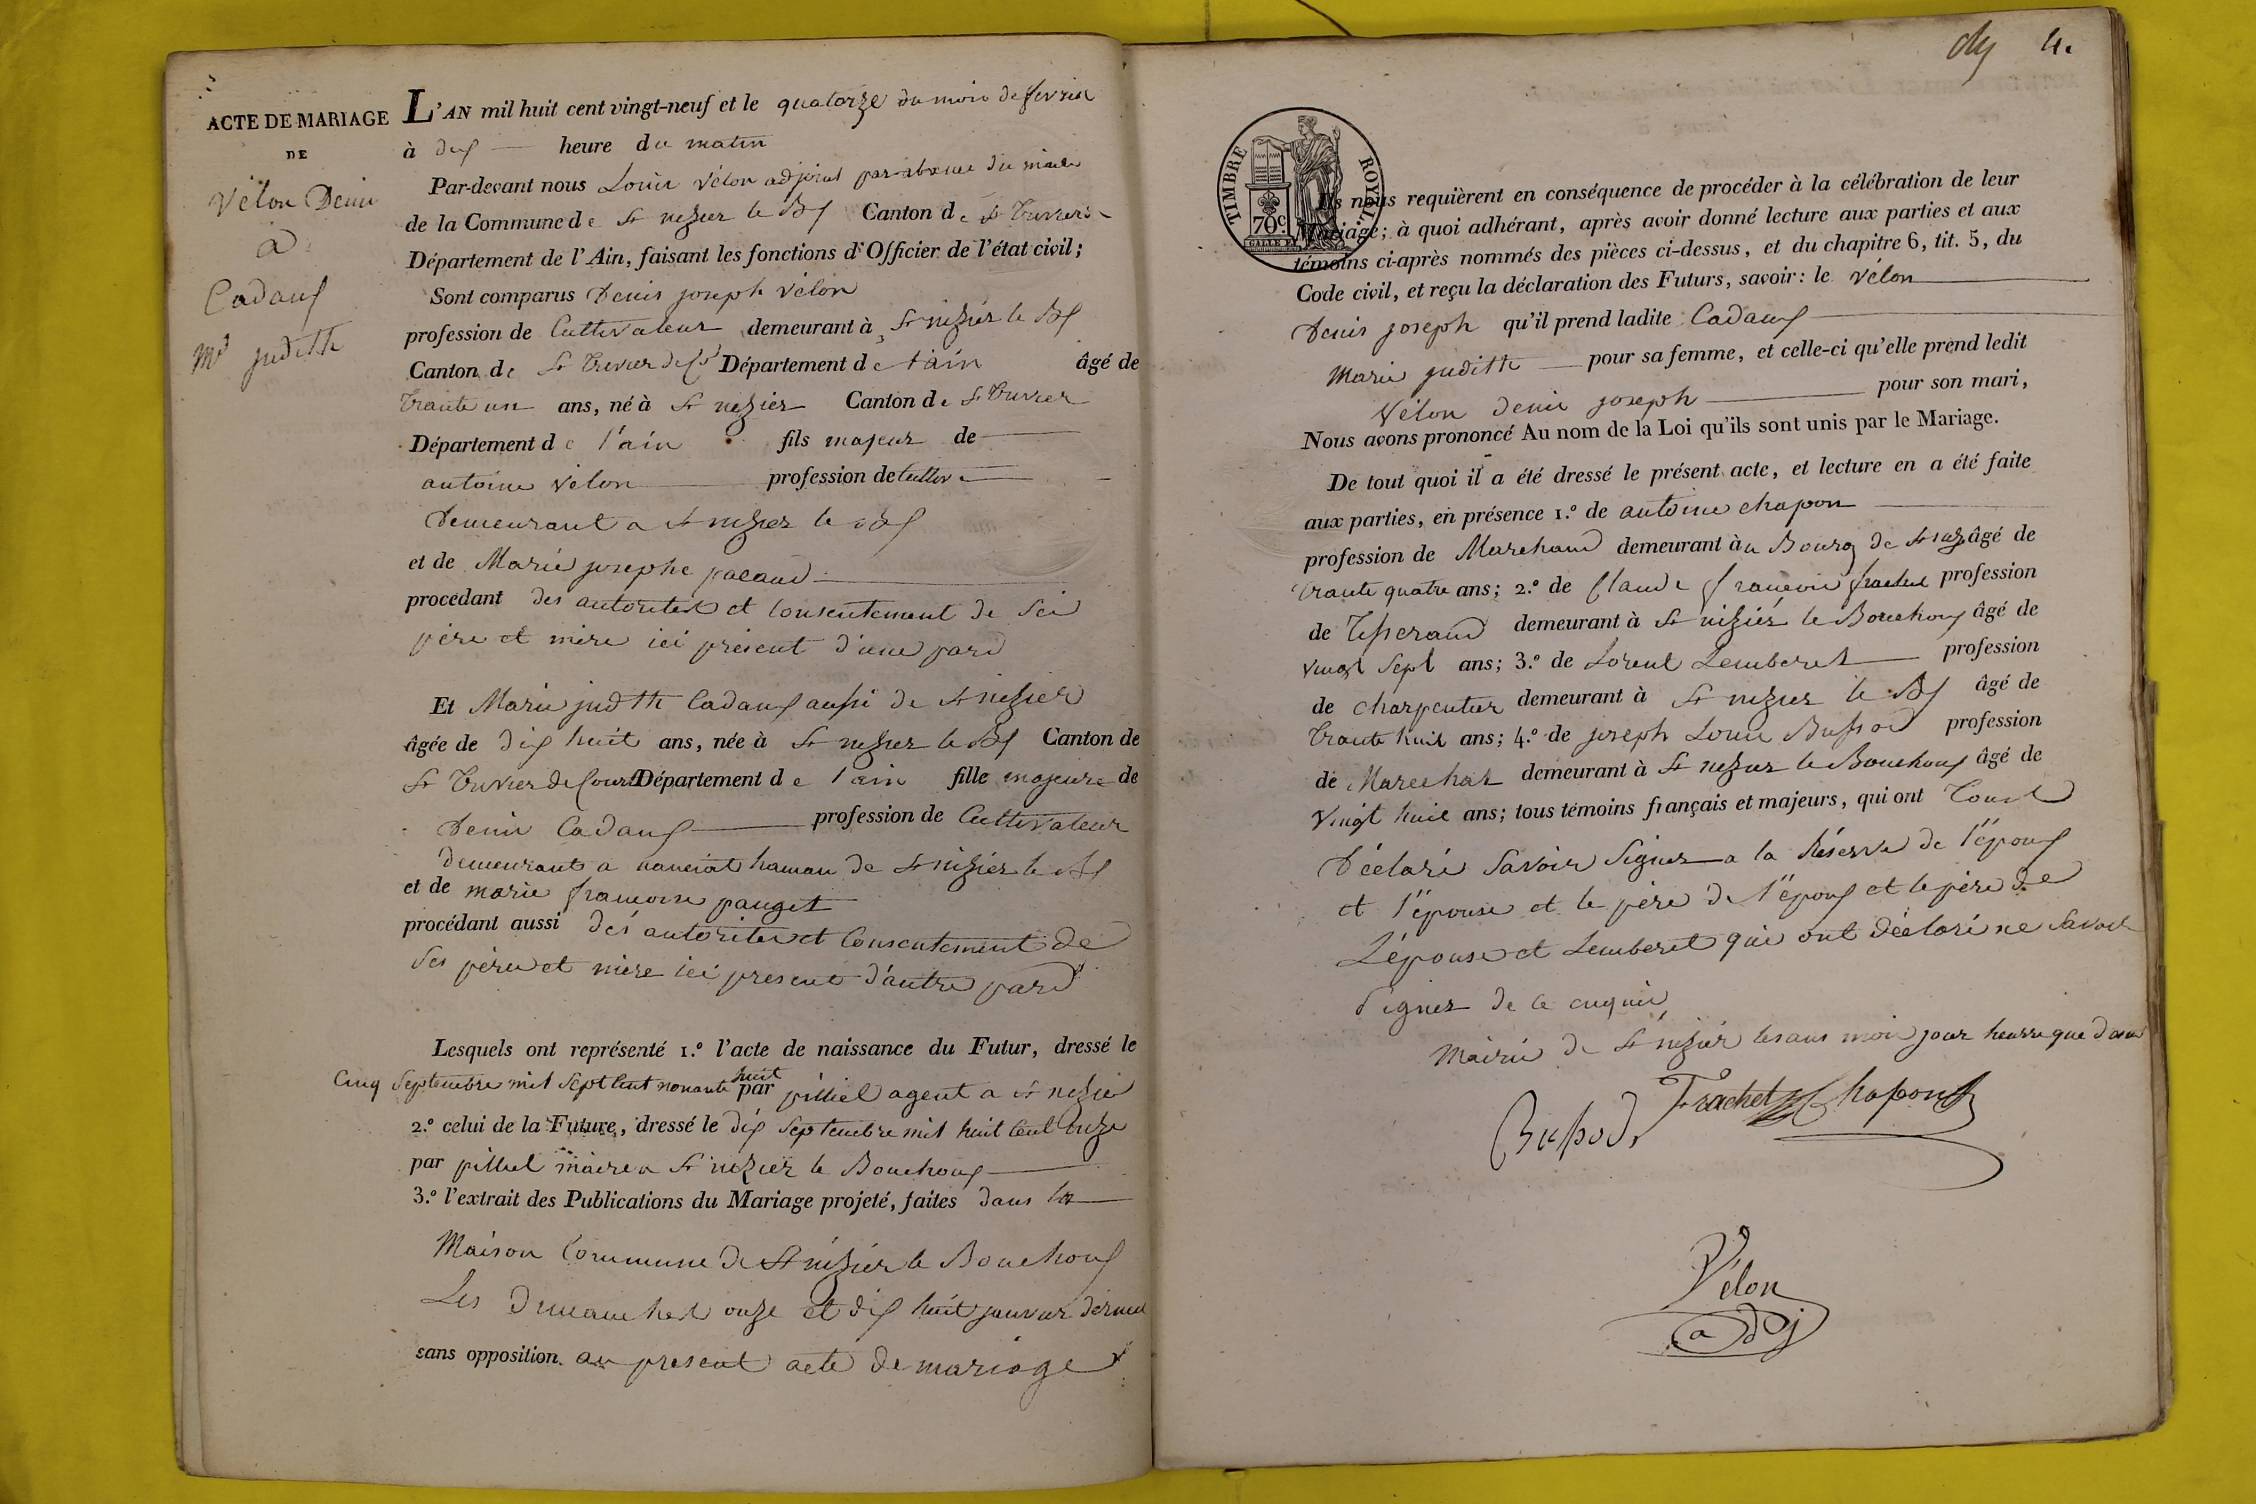 ACTE DE MARIAGE
DE
Vélon Denis
à
Cadaux
Mie judith
L'AN mil huit cent vingt-neuf et le quatorze du mois de fevrier
à dix heure du matin
Par-devant nous Louis Vélon adjoint par absence du maire
de la Commune de St nizier le Bx Canton de St Trivier
Département de l'Ain, faisant les fonctions d'Officier de l'état civil;
Sont comparus Denis joseph Vélon
profession de Cultivateur demeurant à St nizier le Bx
Canton de St Trivier de Cs Département de l'ain âgé de
trante un ans, né à St nizier Canton de St Trivier
Département de l'ain fils majeur de
antoine Vélon profession de Cultiv
Demeurant a St nizier le Bx
et de Marie josephe pacaud
procédant des autorites et consentement de Ses
père et mère ici présent d'une pard
Et Marie judith Cadaux aussi de St nizier
âgée de dix huit ans, née à St nizier le Bx Canton de
St Trivier de Courtes Département de l'ain fille majeure de
Denis Cadaux profession de Cultivateur
demeurant a hamau de St nizier le Bx
et de marie francoise pauget
procédant aussi dés autorites et Consentement de
Ses père et mère ici présent d'autre pard
Lesquels ont représenté 1.º l'acte de naissance du Futur, dressé le
Cinq Septembre mil Sept Cent nonante huit par pilliel agent a St nizier
2.º celui de la Future, dressé le dix Septembre mil huit Cent onze
par pilliel maire a St nizier le Bouchoux
3.º l'extrait des Publications du Mariage projeté, faites dans la
Maison Commune de St nizier le Bouchoux
Les dimanches onze et dix huit janvier dernier
sans opposition. au present acte de mariage
4.
TIMBRE ROYAL
70c
Ils nous requièrent en conséquence de procéder à la célébration de leur
Mariage; à quoi adhérant, après avoir donné lecture aux parties et aux
témoins ci-après nommés des pièces ci-dessus, et du chapitre 6, tit. 5, du
Code civil, et reçu la déclaration des Futurs, savoir: le Vélon
Denis joseph qu'il prend ladite Cadaux
Marie judith pour sa femme, et celle-ci qu'elle prend ledit
Vélon denis joseph pour son mari,
Nous avons prononcé Au nom de la Loi qu'ils sont unis par le Mariage.
De tout quoi il a été dressé le présent acte, et lecture en a été faite
aux parties, en présence 1.º de antoine chapon
profession de Marchand demeurant à u Bourg de St niz âgé de
trante quatre ans; 2.º de Claude francois frachet profession
de Tisserand demeurant à St nizier le Bouchoux âgé de
vingt Sept ans; 3.º de Lorent Lemberet profession
de charpentier demeurant à St nizier le Bx âgé de
trante huit ans; 4.º de joseph Louis Bussod profession
de Marechal demeurant à St nizier le Bouchoux âgé de
Vingt huit ans; tous témoins français et majeurs, qui ont Tous
Déclaré Savoir Signer a la Réserve de l'époux
et l'épouse et le père de l'époux et le père de
L'épouse et Lemberet qui ont déclaré ne Savoir
Signer de ce enquis
Mairie de St nizier les ans mois jour heurre que dessus
Bussod Frachet Chapon
Vélon
adj